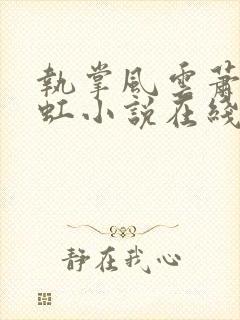 執掌風雲蕭
虹小說在綫
靜在我心